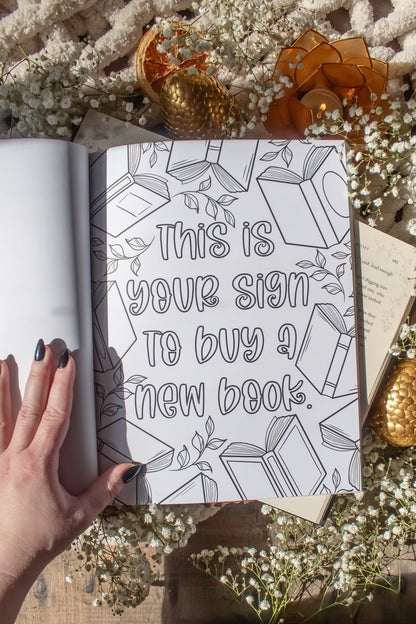 This is
your sign
to buy a
new book.